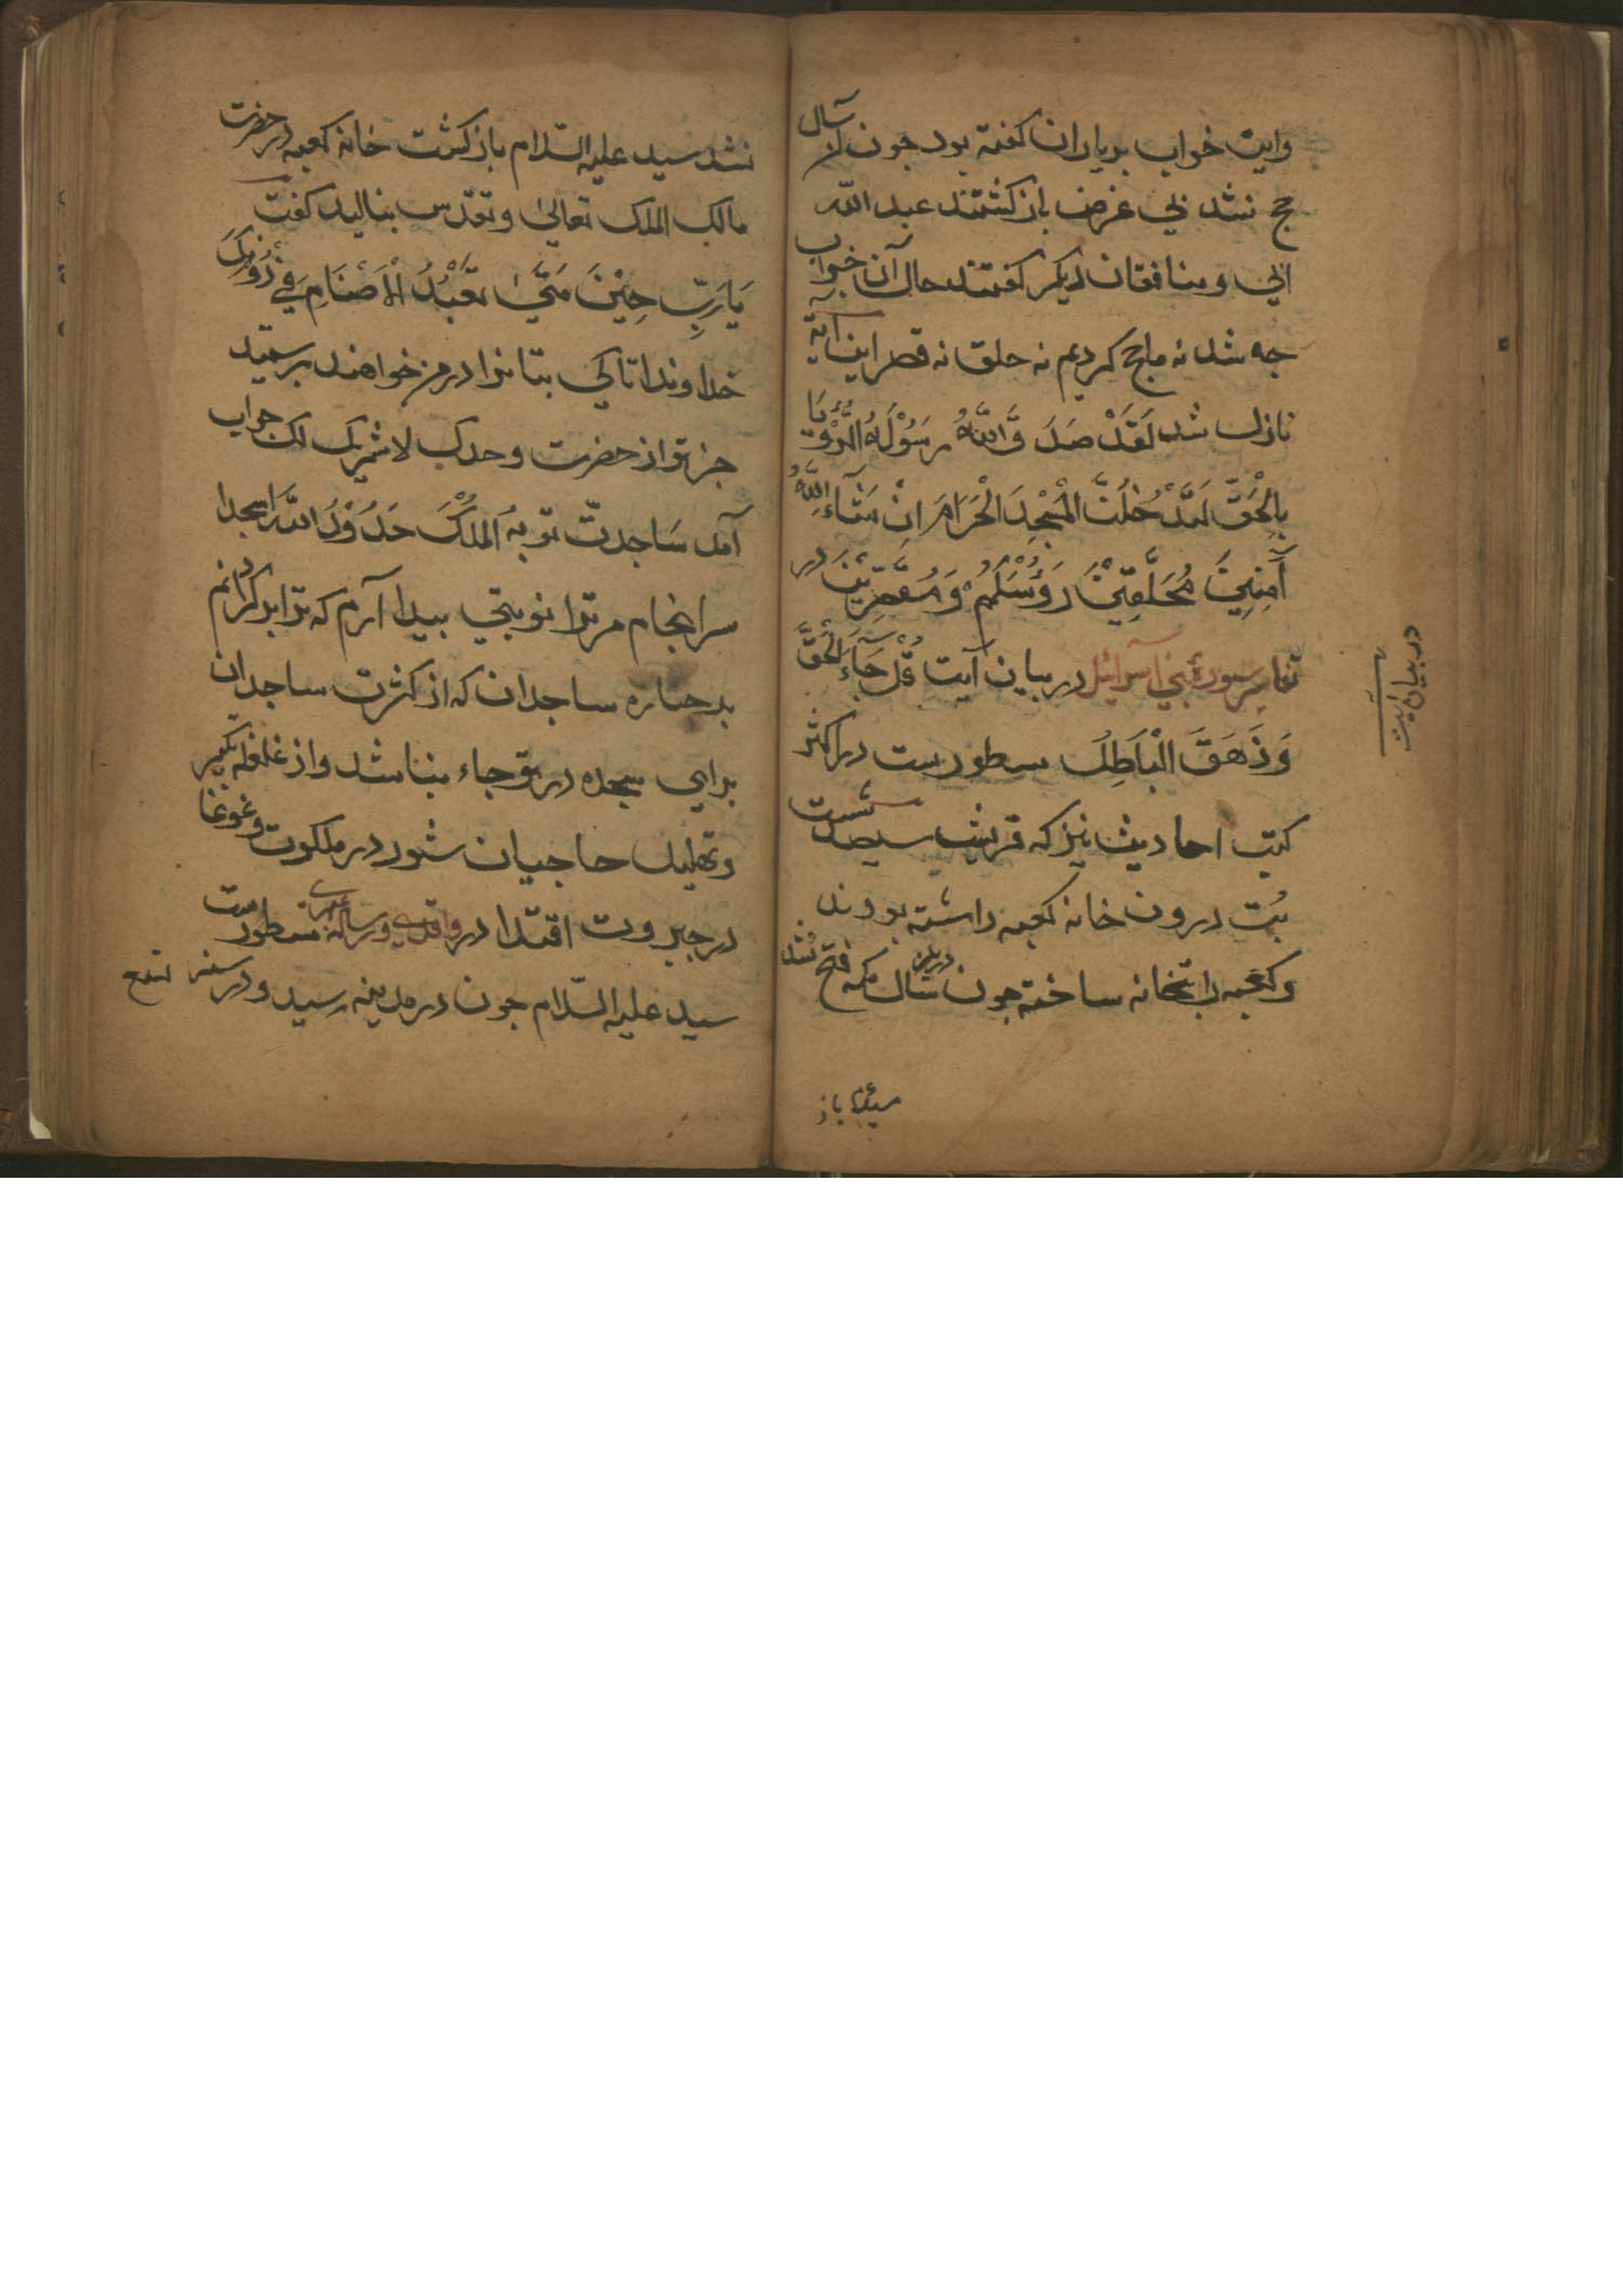 واین خواب بر یاران کفته بود جون آن سال
حج نشد بی غرض باز کشتند عبد الله
ابی و منافقان دیکر کفتند حال آن خواب
جه شد نه ما حج کردیم نه حلق نه قصر این آیة
نازل شد لَقَدْ صَدَقَ اللّٰهُ رَسُوْلَهُ الرُّؤْیَا
بِالْحَقِّ لَتَدْخُلُنَّ الْمَسْجِدَ الْحَرَامَ اِنْ شَآءَ اللّٰهُ
آمِنِیْنَ مُحَلِّقِیْنَ رَؤُسَکُمْ وَمُقَصِّرِیْنَ در
تفاسیر سورهٔ بنی اسرائیل در بیان آیت قُلْ جَآءَ الْحَقُّ
وَزَهَقَ الْبَاطِلُ سطورست در اکثر
کتب احادیث نیز که قریش سیصد شست
بُت درون خانه کعبه داشته بودند
وکعبه را بتخانه ساخته جون درین سال مکه فتح نشد
در بیان آیت
سید باز
نشد سید علیه السّلام باز کشت خانه کعبه در حضرت
مالک الملک تعالیٰ وتقدس بنالید کفت
یَا رَبِّ حِیْنَ مَتیٰ تَعْبُدُ الْاَصْنَامِ فِی دُوْنِکَ
خداوندا تا کی بتانرا در من خواهند پرستید
جز تو از حضرت وحدک لا شریک لک جواب
آمد
سرانجام مر ترا نوبتی پیدا آرم که ترا پر کردانم
بر جباره ساجدان که از کثرت ساجدان
برای سجده در تو جاء نباشد واز غلغله تکبیر
وتهلیل حاجیان شور در ملکوت وغوغا
در جبروت افتد در واقدی ورساله سطورست
سید علیه السّلام جون در مدینه رسید و در سنه تسع